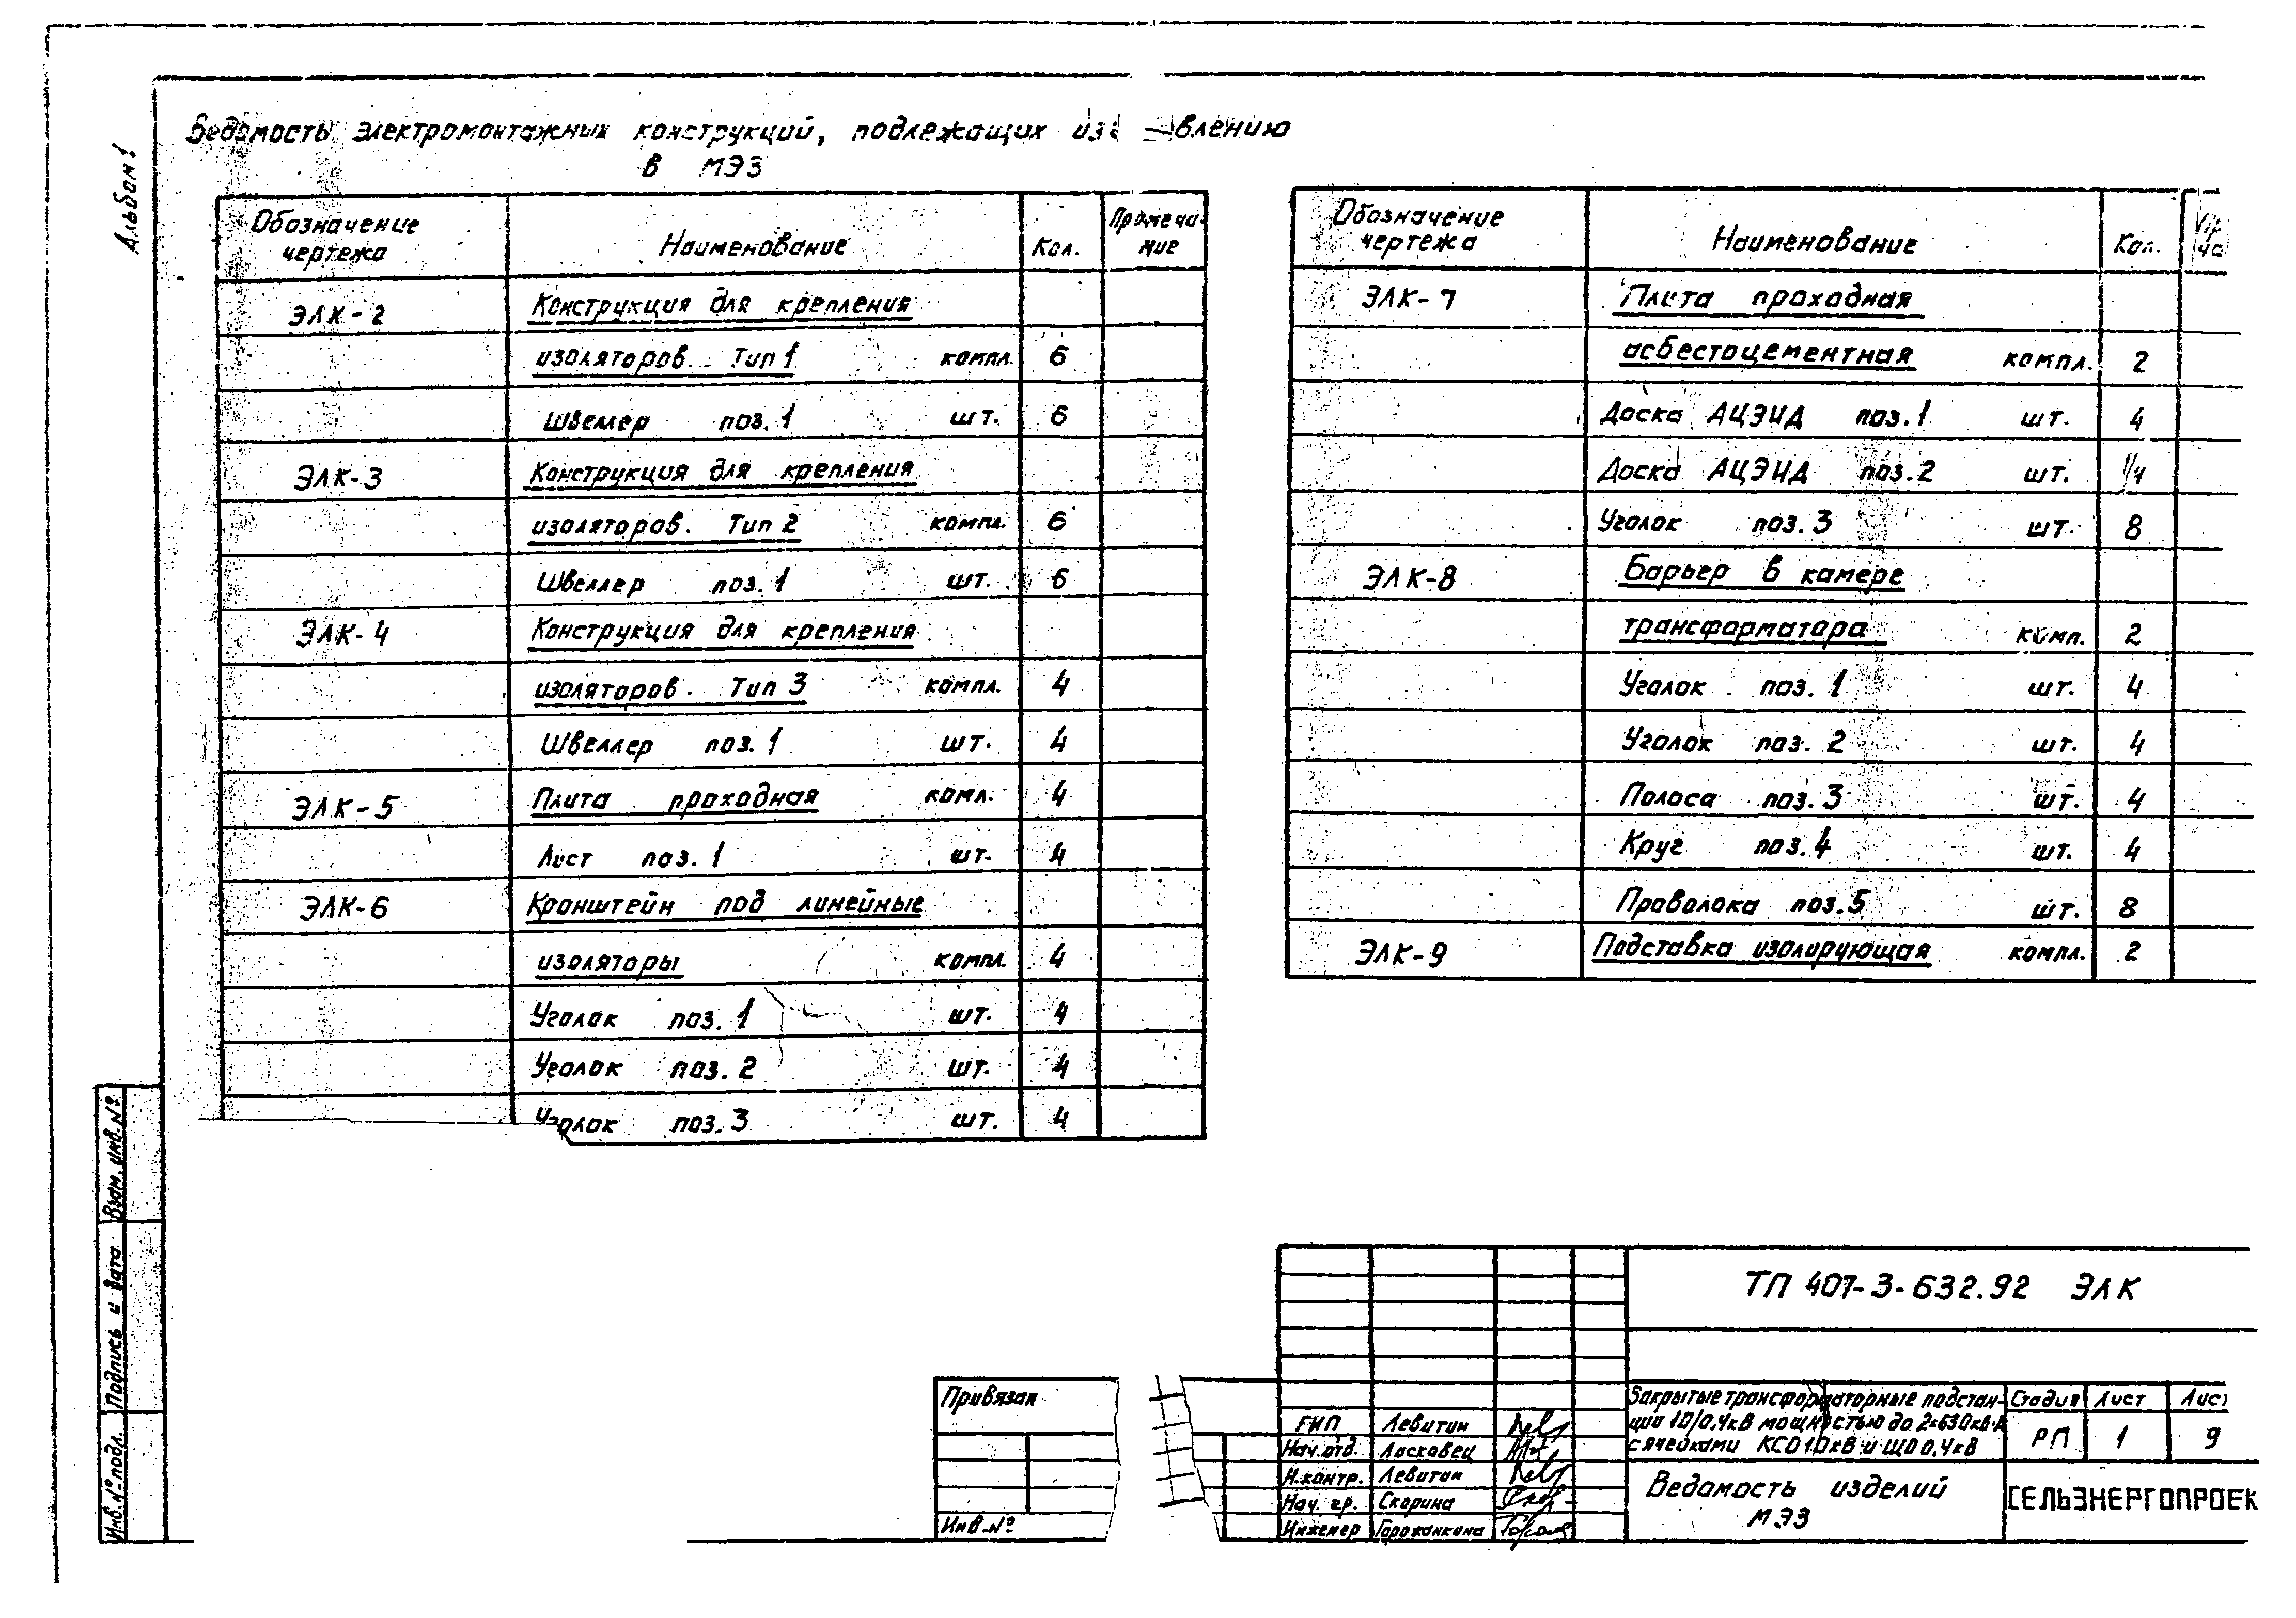 Альбом 1
Ведомость электромонтажных конструкций, подлежащих
в МЭЗ
Обозначение чертежа Наименование Кол. Примечание
ЭЛК-2 Конструкция для крепления
изоляторов. Тип 1 компл. 6
Швеллер поз. 1 шт. 6
ЭЛК-3 Конструкция для крепления
изоляторов. Тип 2 компл. 6
Швеллер поз. 1 шт. 6
ЭЛК-4 Конструкция для крепления
изоляторов. Тип 3 компл. 4
Швеллер поз. 1 шт. 4
ЭЛК-5 Плита проходная комл. 4
Лист поз. 1 шт. 4
ЭЛК-6 Кронштейн под линейные
изоляторы компл. 4
Уголок поз. 1 шт. 4
Уголок поз. 2 шт. 4
Уголок поз. 3 шт. 4
Обозначение чертежа Наименование Кол.
ЭЛК-7 Плита проходная
асбестоцементная компл. 2
Доска АЦЭИД поз. 1 шт. 4
Доска АЦЭИД поз. 2 шт.
Уголок поз. 3 шт. 8
ЭЛК-8 Барьер в камере
трансформатора компл. 2
Уголок поз. 1 шт. 4
Уголок поз. 2 шт. 4
Полоса поз. 3 шт. 4
Круг поз. 4 шт. 4
Проволока поз. 5 шт. 8
ЭЛК-9 Подставка изолирующая компл. 2
Взам. инв. №
Подпись и дата
Инв. № подл.
Привязан
Инв. №
ТП 407-3-632.92 ЭЛК
Закрытые трансформаторные подстан-
ции 10/0,4кВ мощностью до 2×630кВ·А
с ячейками КСО 10кВ и ЩО 0,4кВ
Стадия Лист Лист
РП 1 9
ГИП Левитин
Нач. отд. Ласковец
Н.контр. Левитин
Нач. гр. Скорина
Инженер Горожанкина
Ведомость изделий
МЭЗ
СЕЛЬЭНЕРГОПРОЕК